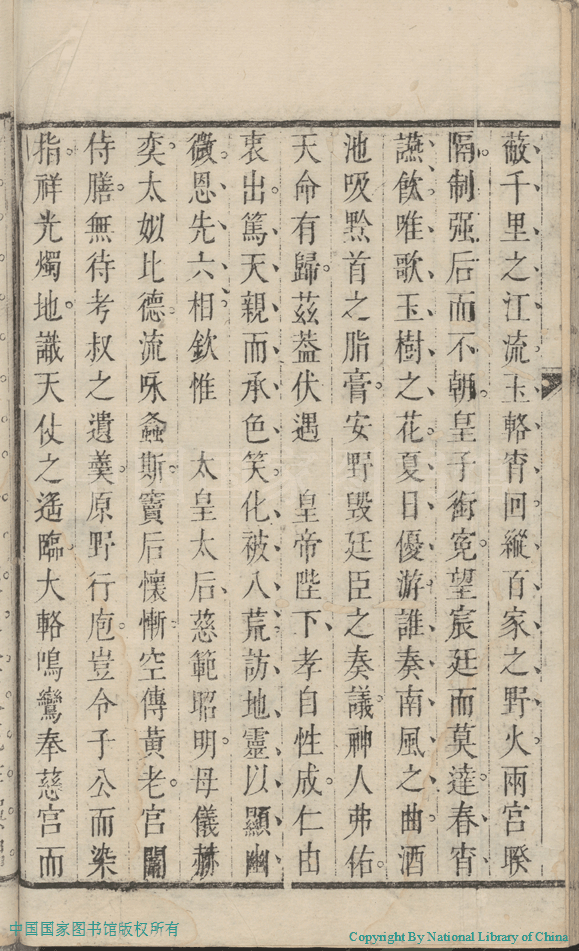 蔽千里之江流玉輅宵回縱百家之野火兩宮暌
隔制强后而不朝皇子銜寃望宸廷而莫達春宵
讌飲唯歌玉樹之花夏日優游誰奏南風之曲酒
池吸黔首之脂膏安野毀廷臣之奏議神人弗佑
天命有歸茲葢伏遇　皇帝陛下孝自性成仁由
衷出篤天親而承色笑化被八荒訪地靈以顯幽
微恩先六相欽惟　太皇太后慈範昭明母儀赫
奕太姒比德流咏螽斯竇后懷慚空傳黃老宮闈
侍膳無待考叔之遺羹原野行庖豈令子公而染
指祥光燭地識天仗之遙臨大輅鳴鸞奉慈宮而
中国国家图书馆版权所有
Copyright By National Library of China